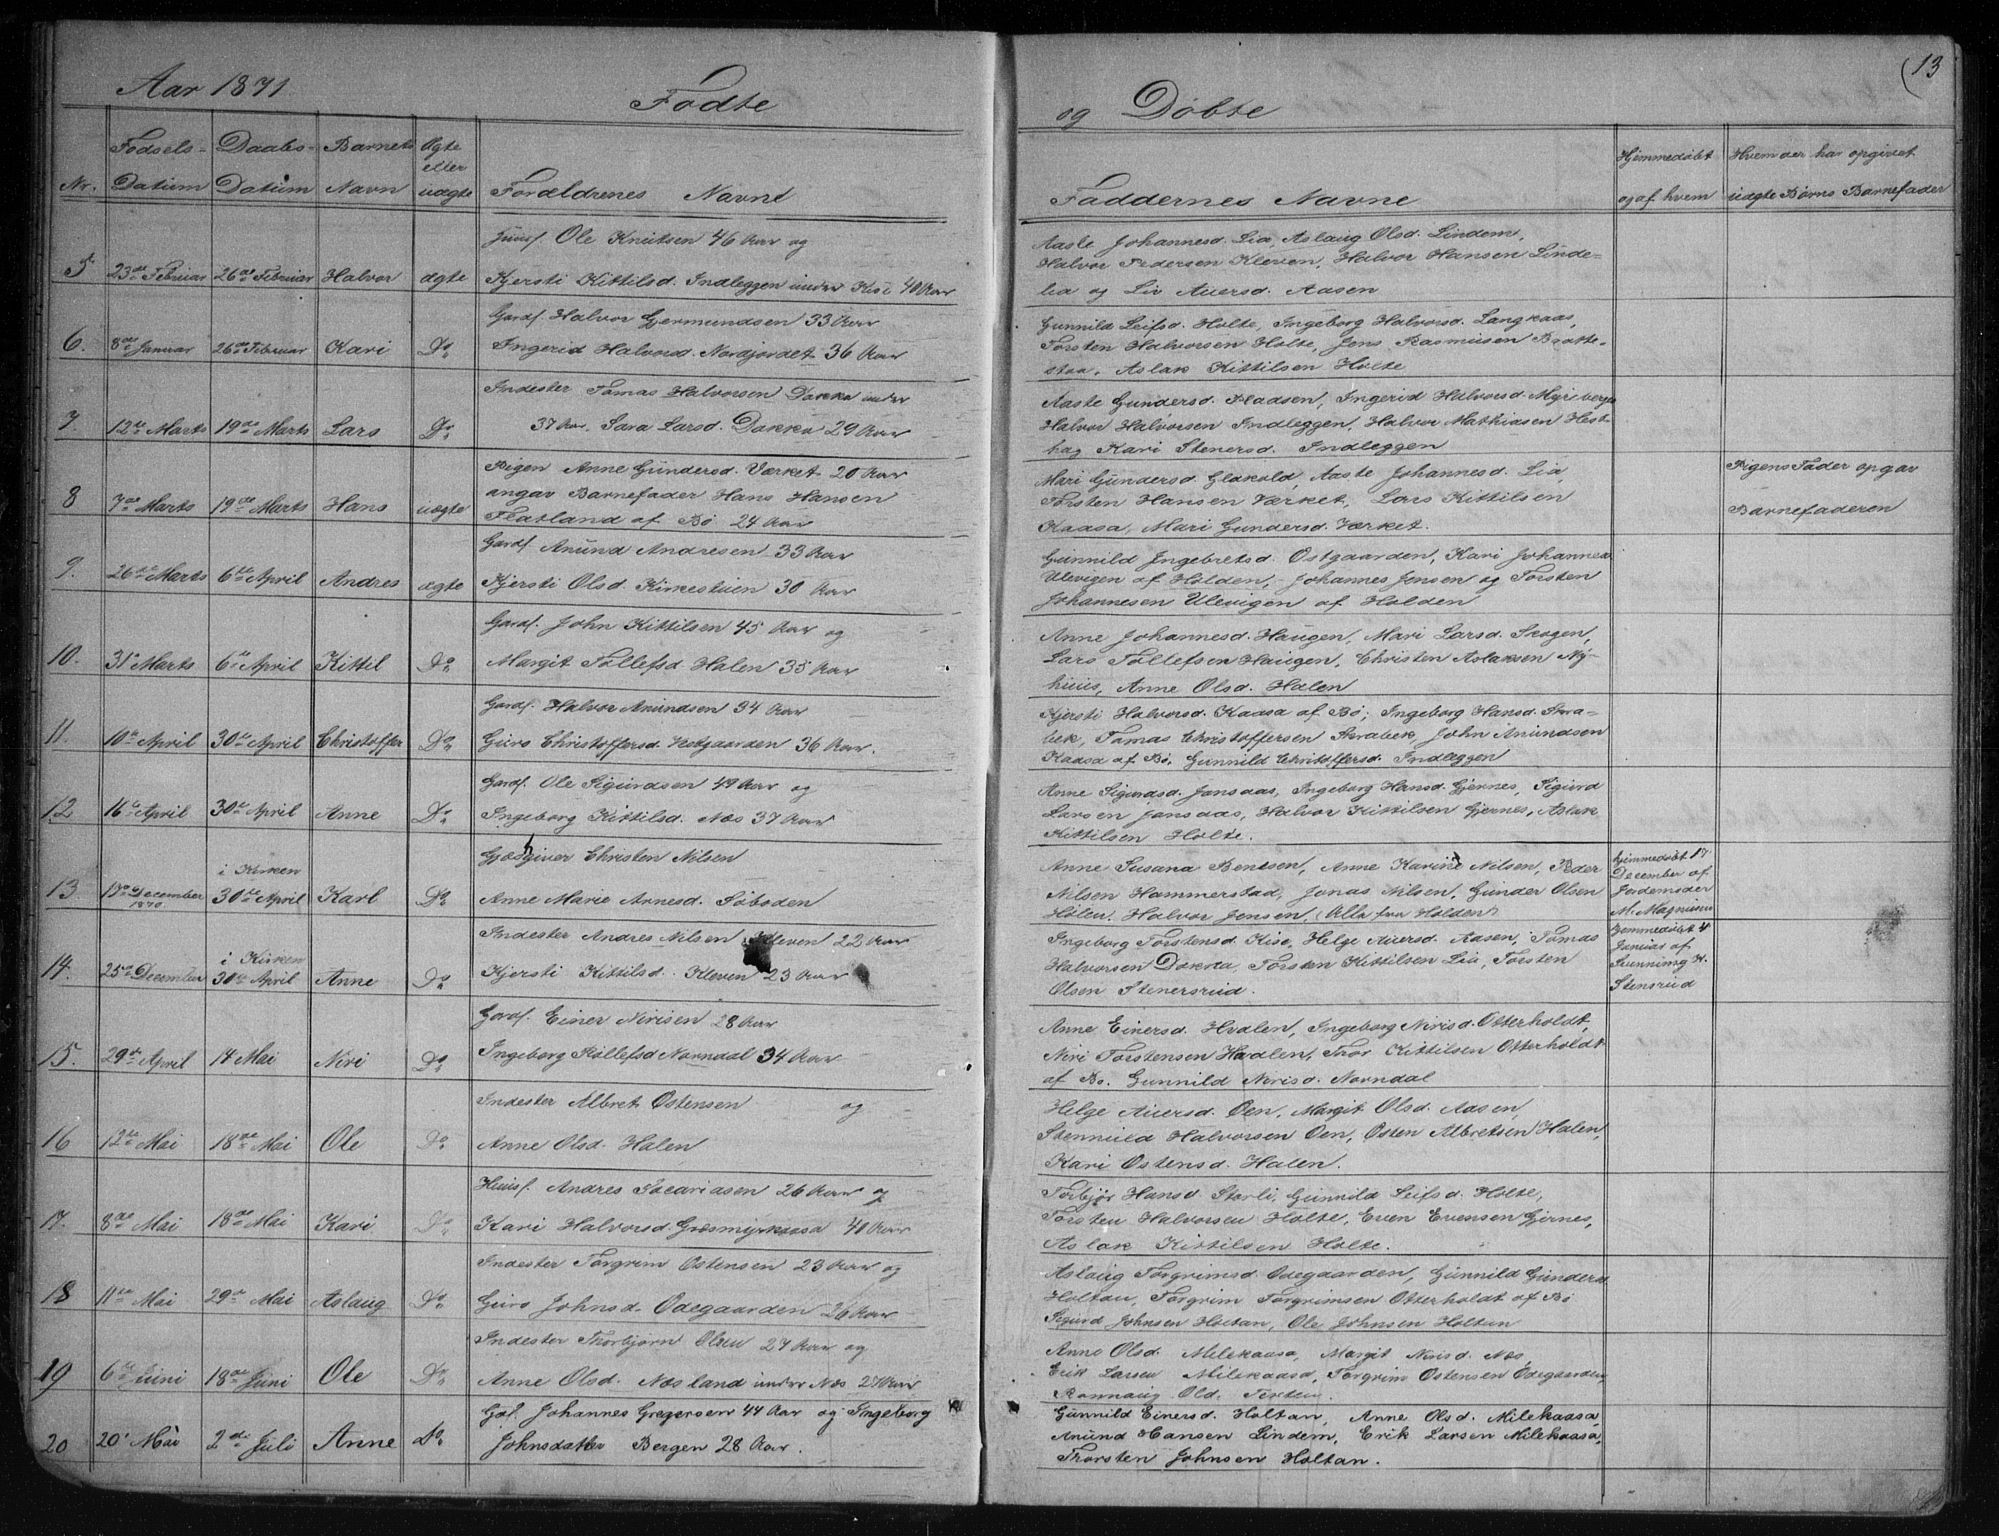 (13
Aar 1871
Fødte
og Døbte
Nr. Fødsels- Datum Daabs- Datum Barnets Navn Ægte eller uægte Forældrenes Navne Faddernes Navne Hjemmedøbt og af hvem Hvem der har opgivet uægte Børns Barnefader
Huusf. Ole Knutsen 46 Aar og
5 23de Februar 26de Februar Halvor ægte Kjersti Kittilsd. Indleggen under Kise 40 Aar
Aaste Johannesd. Lia, Aslaug Olsd. Lindem,
Halvor Pedersen Kleven, Halvor Hansen Linde-
lia og Liv Aversd. Aasen
Gardf. Halvor Gjermundsen 33 Aar
6. 8de Januar 26de Februar Kari Do Ingerid Halvorsd. Nordjordet 36 Aar
Gunnild Leifsd. Holte, Ingeborg Halvorsd. Langkaas,
Torsten Halvorsen Holte, Jens Rasmusen Bratte-
staa, Aslak Kittilsen Holte
Inderster Tomas Halvorsen Dokka under
7. 12te Marts 19de Marts Lars Do 37 Aar, Sara Larsd. Dokka 29 Aar
Aaste Gundersd. Plaasen, Ingerid Halvorsd. Myrberget
Halvor Halvorsen Indleggen, Halvor Mathiasen Hest-
hag Kari Stenersd. Indleggen
Pigen Anne Gundersd. Værket 20 Aar
8 7de Marts 19de Marts Hans uægte angav Barnefader Hans Hansen
Flatland af Bø 24 Aar
Mari Gundersd. Glekold, Aaste Johannesd. Lia,
Torsten Hansen Værket, Lars Kittilsen
Kaasa, Mari Gundersd. Værket.
Pigens Fader opgav
Barnefaderen
Gardf. Anund Andresen 33 Aar
9. 26de Marts 6te April Andres ægte Kjersti Olsd. Kirkestuen 30 Aar
Gunnild Ingebretsd. Østgaarden, Kari Johannesd
Ulevigen af Holden, Johannes Jensen og Torsten
Johannesen Ulevigen af Holden
Gardf. John Kittilsen 45 Aar og
10. 31te Marts 6te April Kittil Do Margit Tollefsd Halen 35 Aar
Anne Johannesd. Haugen, Mari Larsd. Skogen,
Lars Tollefsen Haugen, Christen Aslaksen Ny-
huus, Anne Olsd. Halen
Gardf. Halvor Anundsen 34 Aar
11. 10de April 30te April Christoffer Do Guro Christoffersd. Vestgaarden 36 Aar.
Kjersti Halvorsd. Kaasa af Bø; Ingeborg Hansd. Skra-
bek, Tomas Christoffersen Skrabek, John Anundsen
Kaasa af Bø, Gunnild Christoffersd. Indleggen
Gardf. Ole Sigurdsen 49 Aar og
12 16de April 30te April Anne Do Ingeborg Kittilsd. Næs 37 Aar
Anne Sigurdsd. Jønsaas, Ingeborg Hansd. Gjernes, Sigurd
Larsen Jønsaas, Halvor Kittilsen Gjernes, Aslak
Kittilsen Holte.
Gjæstgiver Christen Nilsen
13 17de December 1870 i Kirken 30te April Karl Do Anne Marie Arnesd. Søboden
Anne Susana Bentsen, Anne Karine Nilsen, Peder
Nilsen Hammerstad, Jonas Nilsen, Gunder Olsen
Holen, Halvor Jensen, (Alle fra Holden)
Hjemmedøbt 17
December af
Jordemoder
M. Magnusen
Inderster Andres Nilsen Kleven 22 Aar
14. 25de December i Kirken 30te April Anne Do Kjersti Kittilsd. Kleven 23 Aar
Ingeborg Torstensd. Kise, Helge Aversd. Aasen, Tomas
Halvorsen Dokka, Torsten Kittilsen Lia, Torsten
Olsen Stenersrud.
Hjemmedøbt 4
Januar af
H.
Stensrud
Gardf. Einer Nirisen 28 Aar
15. 29de April 14 Mai Niri Do Ingeborg Rollefsd Norndal 34 Aar
Anne Einersd. Hvalen, Ingeborg Nirisd. Otterholdt,
Niri Torstensen Hvalen, Thor Kittilsen Otterholdt
af Bø. Gunnild Nirisd. Norndal
Inderster Albret Østensen og
16 12te Mai 18de Mai Ole Do Anne Olsd. Halen
Helge Aversd. Øen, Margit Olsd. Aasen,
Stennuld Halvorsen Øen, Østen Albretsen Halen,
Kari Østensd. Halen.
Huusf. Andres Sacariasen 26 Aar og
17. 8de Mai 18de Mai Kari Do Kari Halvorsd Græsmyrkaasa 40 Aar
Torbjør Hansd. Storli, Gunnild Leifsd. Holte,
Torsten Halvorsen Holte, Even Evensen Gjernes,
Aslak Kittilsen Holte.
Inderster Torgrim Østensen 23 Aar og
18 11te Mai 29de Mai Aslaug Do Guro Johnsd. Ødegaarden 26 Aar
Aslaug Torgrimsd. Ødegaarden, Gunnild Gundersd
Holtan, Torgrim Torgrimsen Otterholdt af Bø
Sigurd Johnsen Holtan, Ole Johnsen Holtan
Inderster Thorbjørn Olsen 27 Aar og
19 6te Juni 18de Juni Ole Do Anne Olsd. Næsland under Næs 27 Aar
Anne Olsd. Milekaasa, Margit Nirisd. Næs
Erik Larsen Milekaasa, Torgrim Østensen Ødegaarden,
Rønnaug Old.
Gaf. Johannes Gregersen 44 Aar og Ingeborg
20 20' Mai 2de Juli Anne Do Johnsdatter Bergen 28 Aar.
Gunnild Einersd. Holtan, Anne Olsd. Milekaasa,
Anund Hansen Lindem, Erik Larsen Milekaasa,
Thorsten Johnsen Holtan.